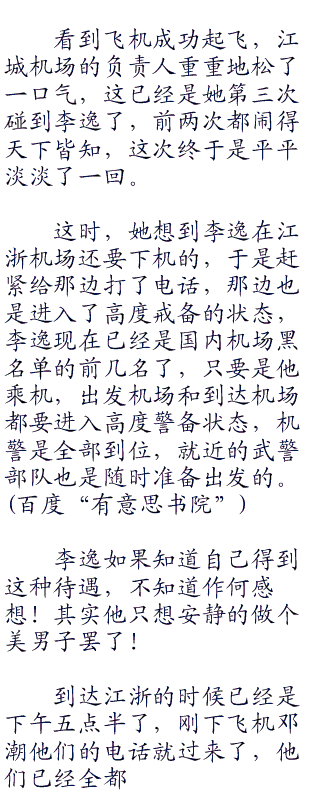 看到飞机成功起飞，江
城机场的负责人重重地松了
一口气，这已经是她第三次
碰到李逸了，前两次都闹得
天下皆知，这次终于是平平
淡淡了一回。
这时，她想到李逸在江
浙机场还要下机的，于是赶
紧给那边打了电话，那边也
是进入了高度戒备的状态，
李逸现在已经是国内机场黑
名单的前几名了，只要是他
乘机，出发机场和到达机场
都要进入高度警备状态，机
警是全部到位，就近的武警
部队也是随时准备出发的。
(百度“有意思书院”)
李逸如果知道自己得到
这种待遇，不知道作何感
想！其实他只想安静的做个
美男子罢了！
到达江浙的时候已经是
下午五点半了，刚下飞机邓
潮他们的电话就过来了，他
们已经全都